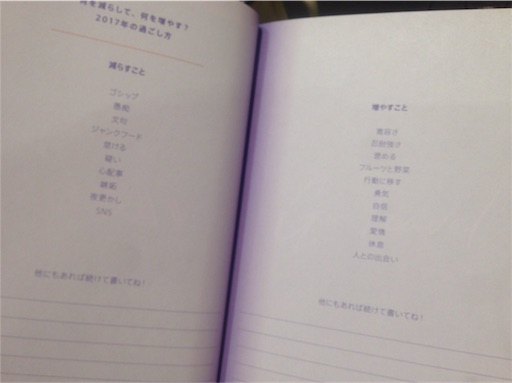 何を減らして、何を増やす?
2017年の過ごし方
減らすこと
ゴシップ
愚痴
文句
ジャンクフード
怠ける
疑い
心配事
嫉妬
夜更かし
SNS
他にもあれば続けて書いてね!
増やすこと
寛容さ
忍耐強さ
褒める
フルーツと野菜
行動に移す
勇気
自信
理解
愛情
休息
人との出会い
他にもあれば続けて書いてね!